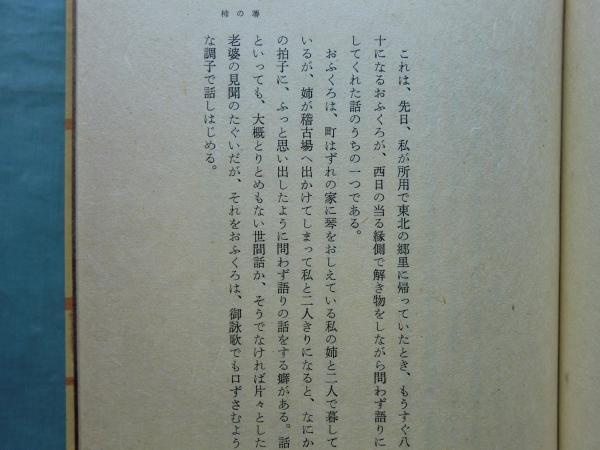 これは、先日、私が所用で東北の郷里に帰っていたとき、もうすぐ八
十になるおふくろが、西日の当る縁側で解き物をしながら問わず語りに
してくれた話のうちの一つである。
おふくろは、町はずれの家に琴をおしえている私の姉と二人で暮して
いるが、姉が稽古場へ出かけてしまって私と二人きりになると、なにか
の拍子に、ふっと思い出したように問わず語りの話をする癖がある。話
といっても、大概とりとめもない世間話か、そうでなければ片々とした
老婆の見聞のたぐいだが、それをおふくろは、御詠歌でも口ずさむよう
な調子で話しはじめる。